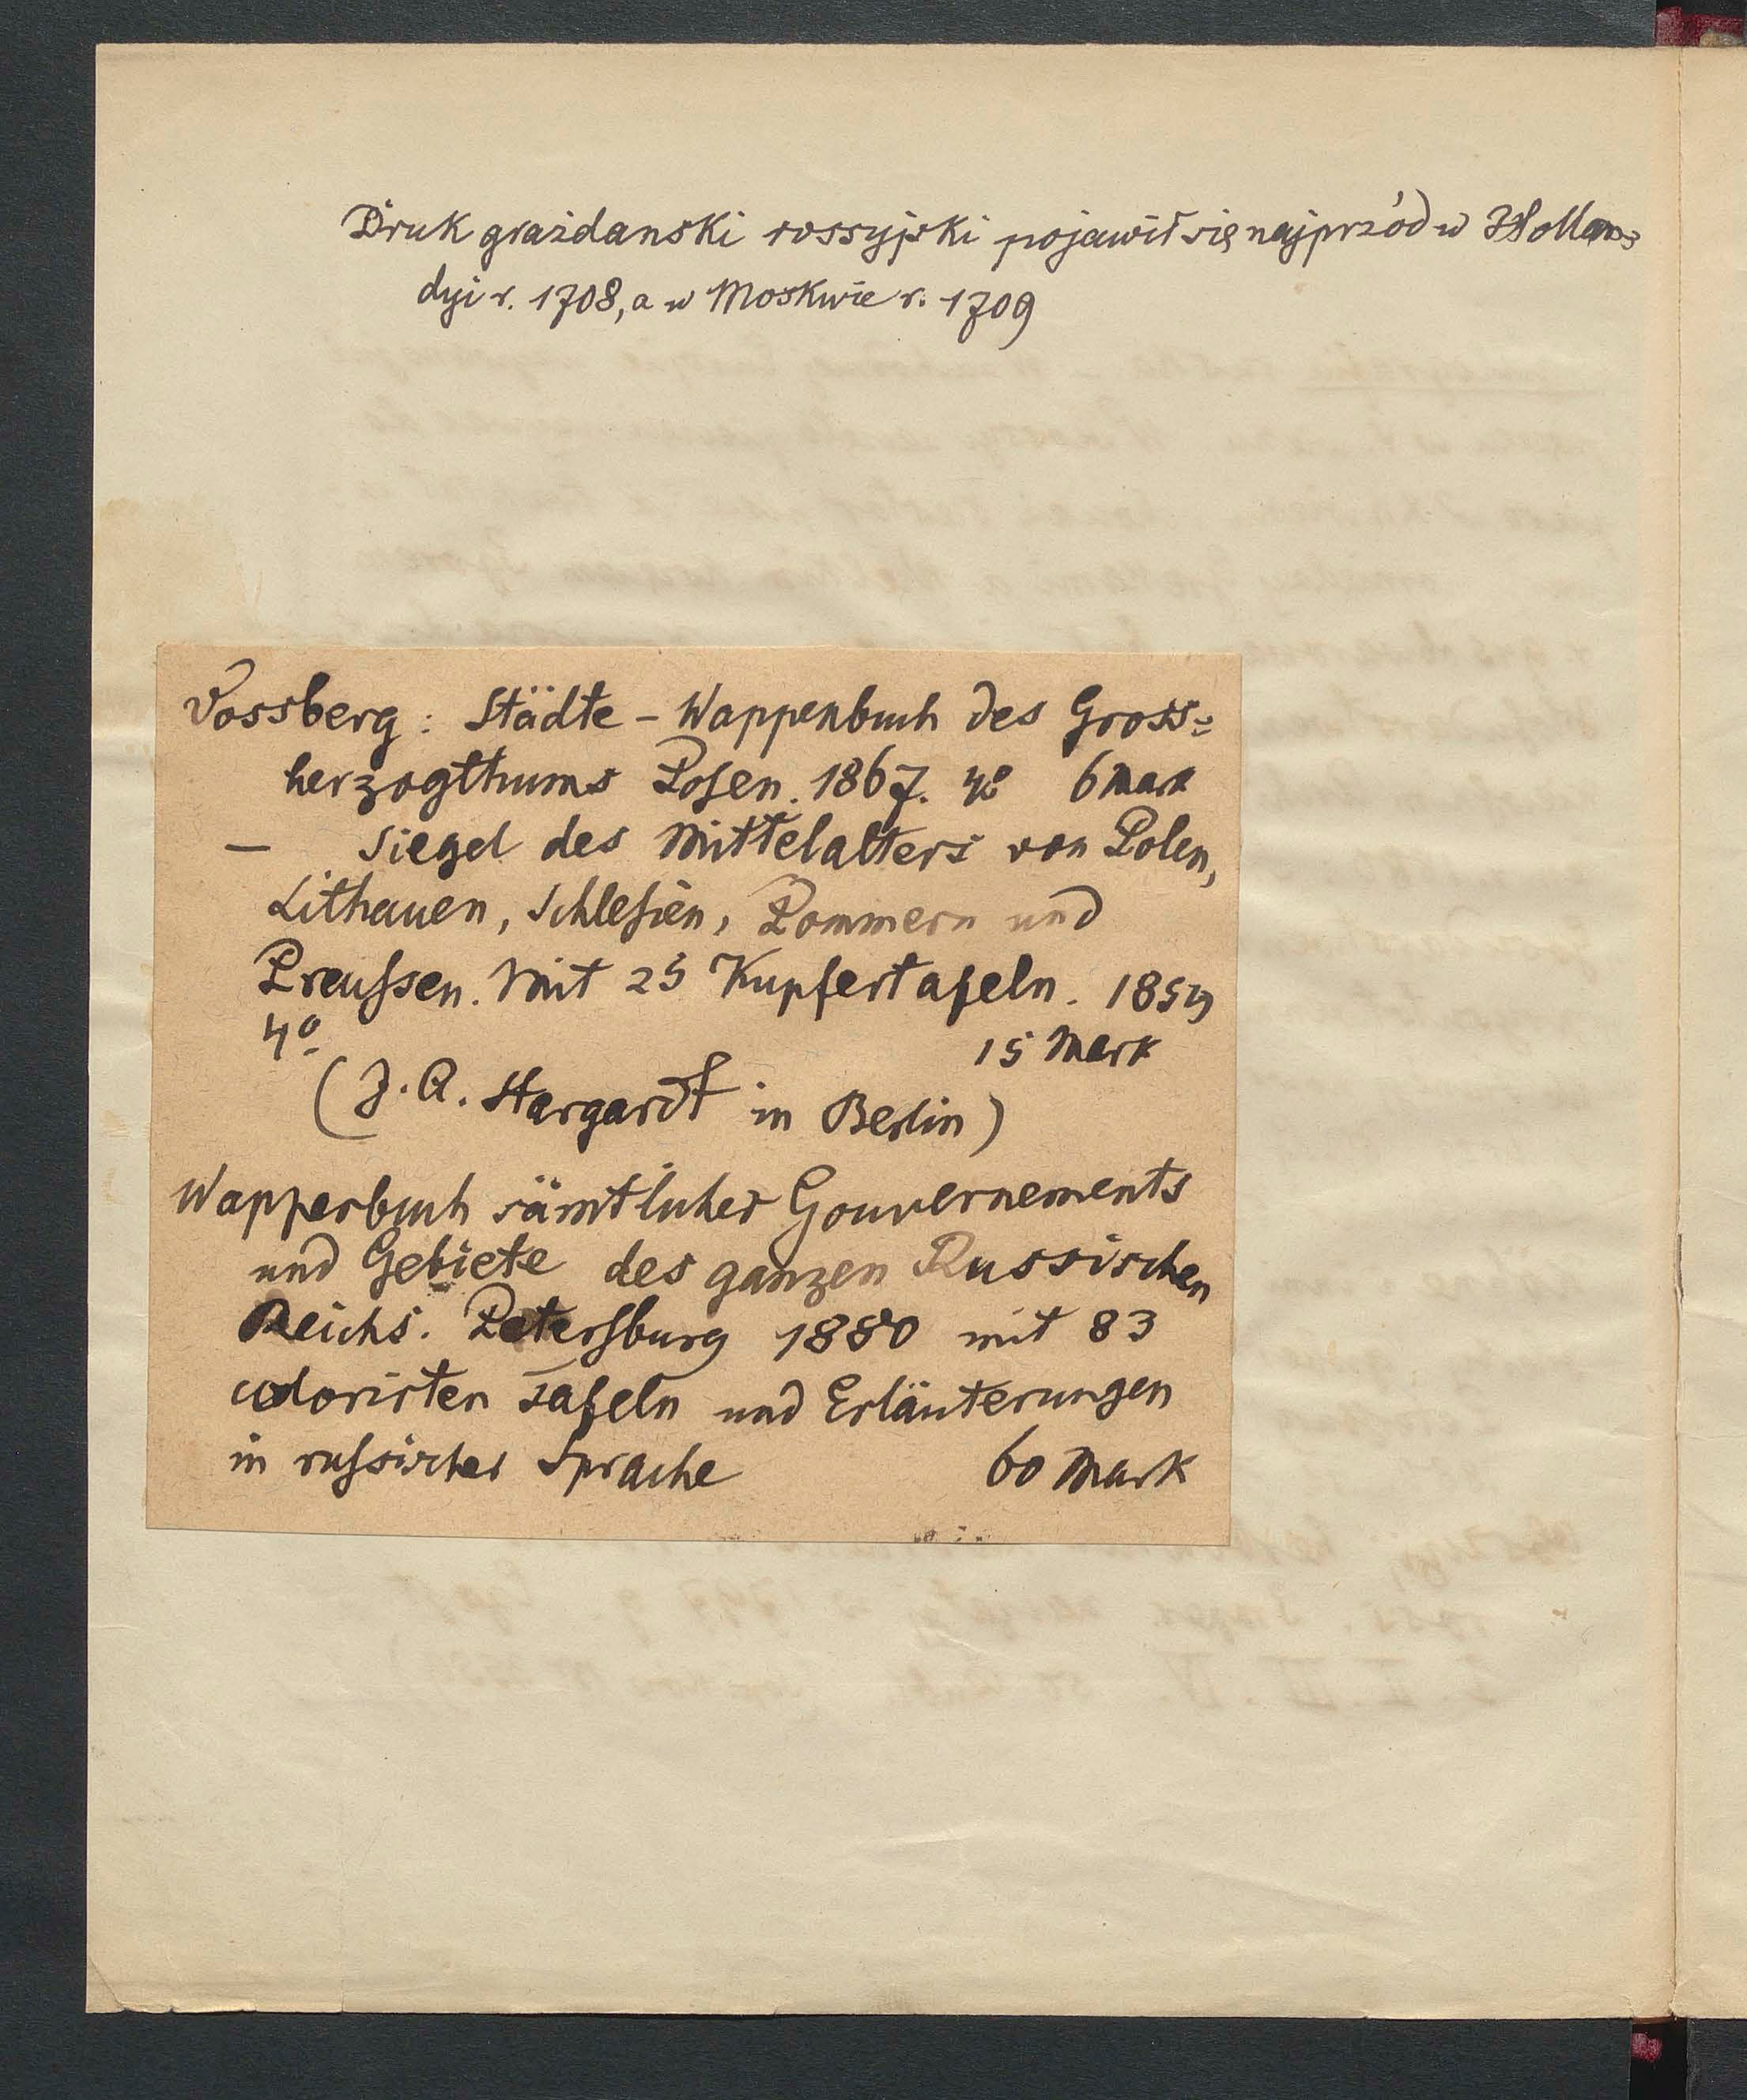 Druk grażdanski rossyjski pojawił się najprzód w Hollan=
dyi r. 1708, a w Moskwie r. 1709
Vossberg: Städte-Wappenbuch des Gross=
herzogthums Posen. 1867. 4º 6 Mark
— Siegel des Mittelalters von Polen,
Lithauen, Schlesien, Pommern und
Preussen. Mit 25 Kupfertafeln. 1854
4º 15 Mark
(J. A. Stargardt in Berlin)
Wappenbuch sämtlicher Gouvernements
und Gebiete des ganzen Russischen
Reichs. Petersburg 1880 mit 83
colorirten Tafeln und Erläuterungen
in russischer Sprache 60 Mark